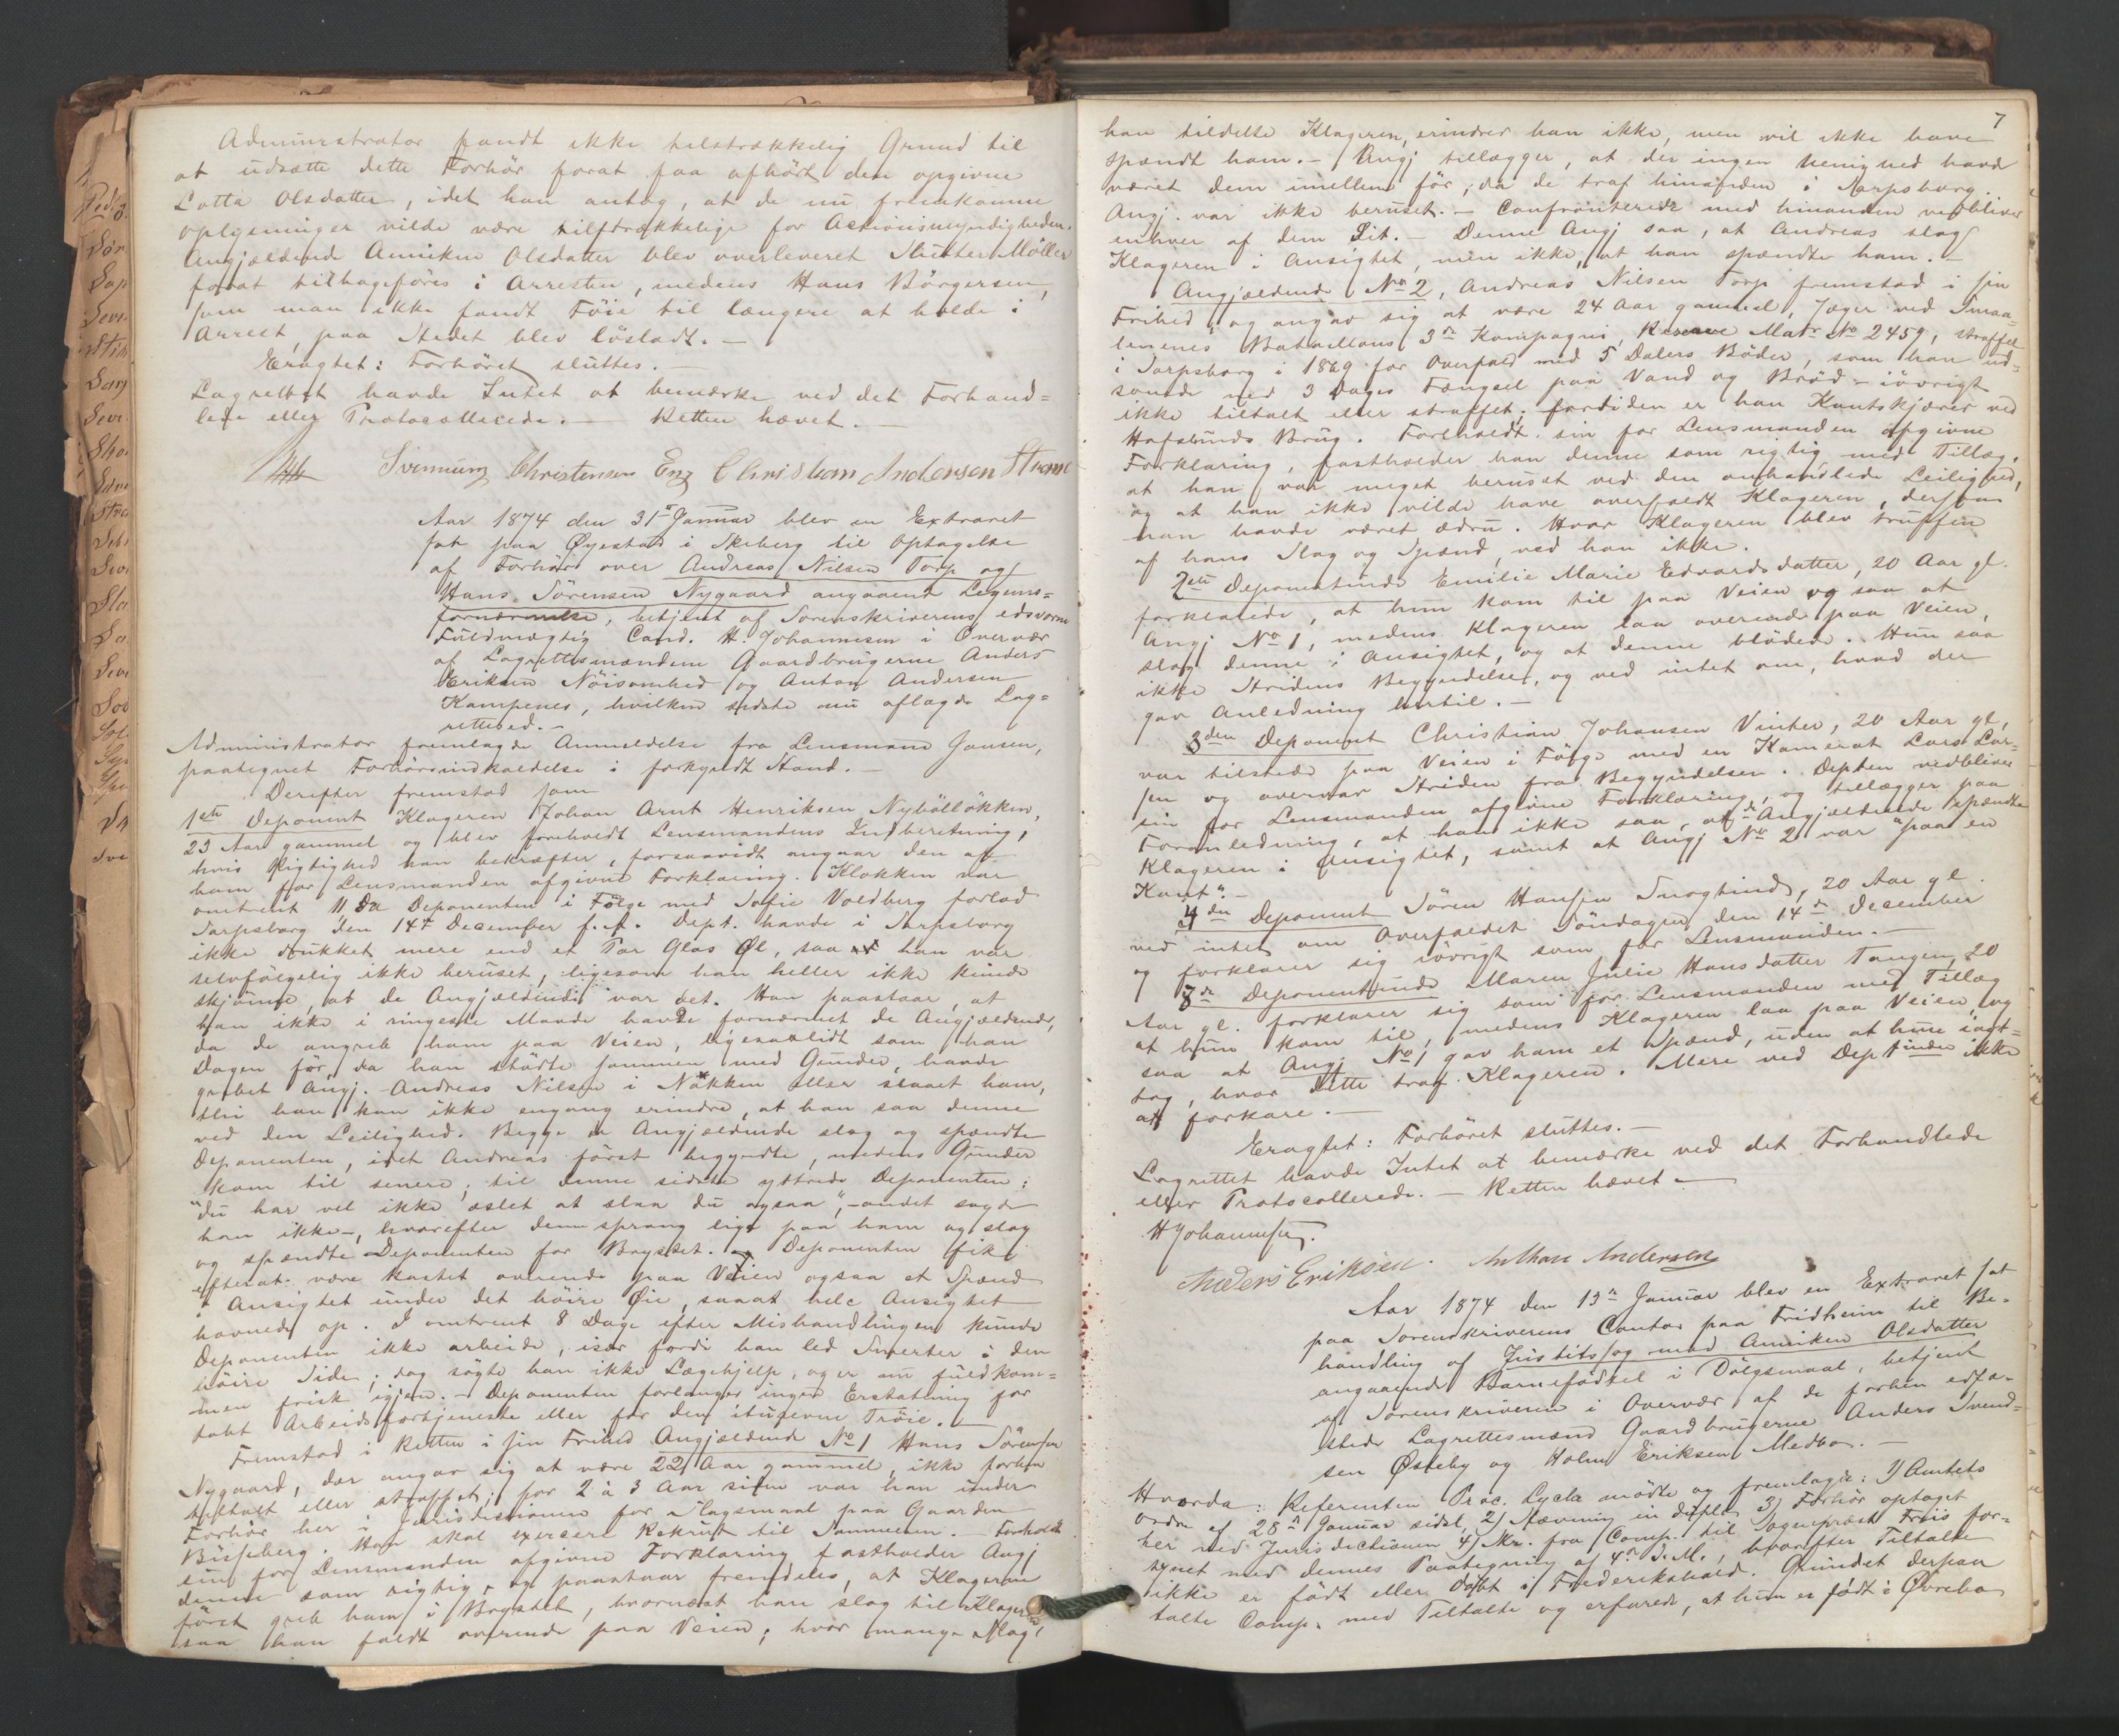 Administrator fandt ikke tilstrækkelig Grund til
at udsætte dette Forhör forat faa afhört den opgivne
Lotta Olsdatter, idet han antog, at de nu fremkomne
Oplysninger vilde være tilstrækkelige for Actionsmyndigheden.
Angjældende Anniken Olsdatter blev overleveret Slutter Möller
forat tilbageföres i Arresten, medens Hans Börgersen,
som man ikke fandt Föie til længere at holde i
Arrest, paa Stedet blev lösladt. —
Eragtet: Forhöret sluttes. —
Lagrettet havde Intet at bemærke ved det Forhand=
lede eller Protocollerede. — Retten hævet. —
Svennung Christensen Eng Christian Andersen Strøm
Aar 1874 den 31te Januar blev en Extraret
sat paa Øyestad i Skeberg til Optagelse
af Forhör over Andreas Nilsen Torp og
Hans Sörensen Nygaard angaaende Legems=
fornærmelse, betjent af Sorenskriverens edsvorne
Fuldmægtig Cand. H. Johannesen i Overvær
af Lagrettesmændene Gaardbrugerne Anders
Eriksen Nöisomhed og Anton Andersen
Kampenes, hvilken sidste nu aflagde Lag=
retteed. —
Administrator fremlagde Anmeldelse fra Lensmand Jansen,
paategnet Forhörsindkaldelse i forkyndt Stand. —
Derefter fremstod som
1ste Deponent Klageren Johan Arnt Henriksen Nybölløkken,
23 Aar gammel og blev foreholdt Lensmandens Indberetning,
hvis Rigtighed han bekræfter, forsaavidt angaar den af
ham for Lensmanden afgivne Forklaring. Klokken var
omtrent 11, da Deponenten i Fölge med Sofie Voldberg forlod
Sarpsborg den 14de December f. A. Dept. havde i Sarpsborg
ikke drukket mere end et Par Glas Øl, saa han var
selvfölgelig ikke beruset, ligesom han heller ikke kunde
skjönne, at de Angjældende var det. Han paastaar, at
han ikke i ringeste Maade havde fornærmet de Angjældende,
da de angreb ham paa Veien, ligesaalidt som han
Dagen för, da han stödte sammen med Gunder, havde
grebet Angj. Andreas Nilsen i Nakken eller slaaet ham,
thi han kan ikke engang erindre, at han saa denne
ved den Leilighed. Begge de Angjældende slog og spændte
Deponenten, idet Andreas först begyndte, medens Gunder
kom til senere; til denne sidste yttrede Deponenten:
"du har vel ikke æslet at slaa du ogsaa", – andet sagde
han ikke –, hvorefter denne sprang lige paa ham og slog
og spændte Deponenten for Brystet. Deponenten fik
efterat være kastet overende paa Veien ogsaa et Spænd
i Ansigtet under det höire Øie, saaat hele Ansigtet
hovnede op. I omtrent 8 Dage efter Mishandlingen kunde
Deponenten ikke arbeide, især fordi han led Smerter i den
höire Side; dog sögte han ikke Lægehjelp, og er nu fuldkom=
men frisk igjen. – Deponenten forlanger ingen Erstatning for
tabt Arbeidsfortjeneste eller for den iturevne Tröie. —
Fremstod i Retten i sin Frihed Angjældende No 1 Hans Sörensen
Nygaard, der angav sig at være 22 Aar gammel, ikke forhen
tiltalt eller straffet; for 2 à 3 Aar siden var han under
Forhör her i Jurisdictionen for Slagsmaal paa Gaarden
Bisseberg. Han skal exercere Rekrut til Sommeren. — Foreholdt
sin for Lensmanden afgivne Forklaring fastholder Angj
denne som rigtig, og paastaar fremdeles, at Klageren
först greb ham i Brystet, hvornæst han slog til Klageren
saa han faldt overende paa Veien; hvor mange Slag
7
han tildelte Klageren, erindrer han ikke, men vil ikke have
spændt ham. – Angj tillægger, at der ingen Uenighed havde
været dem imellem för, da de traf hinanden i Sarpsborg.
Angj. var ikke beruset. — Confronterede med hinanden vedbliver
enhver af dem Sit. — Denne Angj saa, at Andreas slog
Klageren i Ansigtet, men ikke, at han spændte ham. —
Angjældende No 2, Andreas Nilsen Torp fremstod i sin
Frihed og angav sig at være 24 Aar gammel, Jæger ved Smaa=
lenenes Bataillons 3de Kompagni, Reserve Matr No 2459, straffet
i Sarpsborg i 1869 for Overfald med 5 Dalers Böder, som han ud=
sonede med 3 Dages Fængsel paa Vand og Bröd – iövrigt
ikke tiltalt eller straffet; fortiden er han Kantskjærer ved
Hafslunds Brug. Foreholdt sin for Lensmanden afgivne
Forklaring, fastholder han denne som rigtig med Tillæg,
at han var meget beruset ved den omhandlede Leilighed,
og at han ikke vilde have overfaldt Klageren, dersom
han havde været ædru. Hvor Klageren blev truffen
af hans Slag og Spænd, ved han ikke.
2den Deponentinde Emilie Marie Edvardsdatter, 20 Aar gl.
forklarede, at hun kom til paa Veien og saa at
Angj No 1, medens Klageren laa overende paa Veien,
slog denne i Ansigtet, og at denne blödede. Hun saa
ikke Stridens Begyndelse, og ved intet om, hvad der
gav Anledning hertil. —
3den Deponent Christian Johansen Vinter, 20 Aar gl,
var tilstede paa Veien i Fölge med en Kamerat Lars Lar=
sen og overvar Striden fra Begyndelsen. Depten vedbliver
sin for Lensmanden afgivne Forklaring, og tillægger paa
Foranledning, at han ikke saa, at de Angjældende spændte
Klageren i Ansigtet, samt at Angj No 2 var "paa en
Kant". —
4den Deponent Sören Hansen Snogtind, 20 Aar gl.
ved intet om Overfaldet Söndagen den 14de December
og forklarer sig iövrigt som for Lensmanden. —
Deponentinde Maren Julie Hansdatter Tangen, 20
Aar gl. forklarer sig som for Lensmanden med Tillæg
at hun kom til, medens Klageren laa paa Veien, og
saa at Angj No 1 gav ham et Spænd, uden at hun iagt=
tog, hvor dette traf Klageren. Mere ved Deptinden ikke
at forkare. —
Eragtet: Forhöret sluttes. —
Lagrettet havde Intet at bemærke ved det Forhandlede
eller Protocollerede. — Retten hævet —
HJohannesen.
Anders Eriksen. Anthon Andersen
Aar 1874 den 13de Januar blev en Extraret sat
paa Sorenskriverens Contor paa Fridheim til Be=
handling af Justitssag mod Anniken Olsdatter
angaaende Barnefödsel i Dölgsmaal, betjent
af Sorenskriveren i Overvær af de forhen edfæ=
stede Lagrettesmænd Gaardbrugerne Anders Svend=
sen Østeby og Holm Eriksen Medbø. —
Hvorda: Referenten Proc. Lyche mödte og fremlagde: 1) Amtets
Ordre af 28de Januar sidst, 2) Stævning in duplo 3) Forhör optaget
her ved Jurisdictionen 4) Skr. fra Comp. til Sognepræst Friis for=
synet med dennes Paategning af 4de d. M., hvorefter Tiltalte
ikke er födt eller döbt i Frederikshald. Grundet derpaa
talte Comp. med Tiltalte og erfarede, at hun er födt i Øvrebø